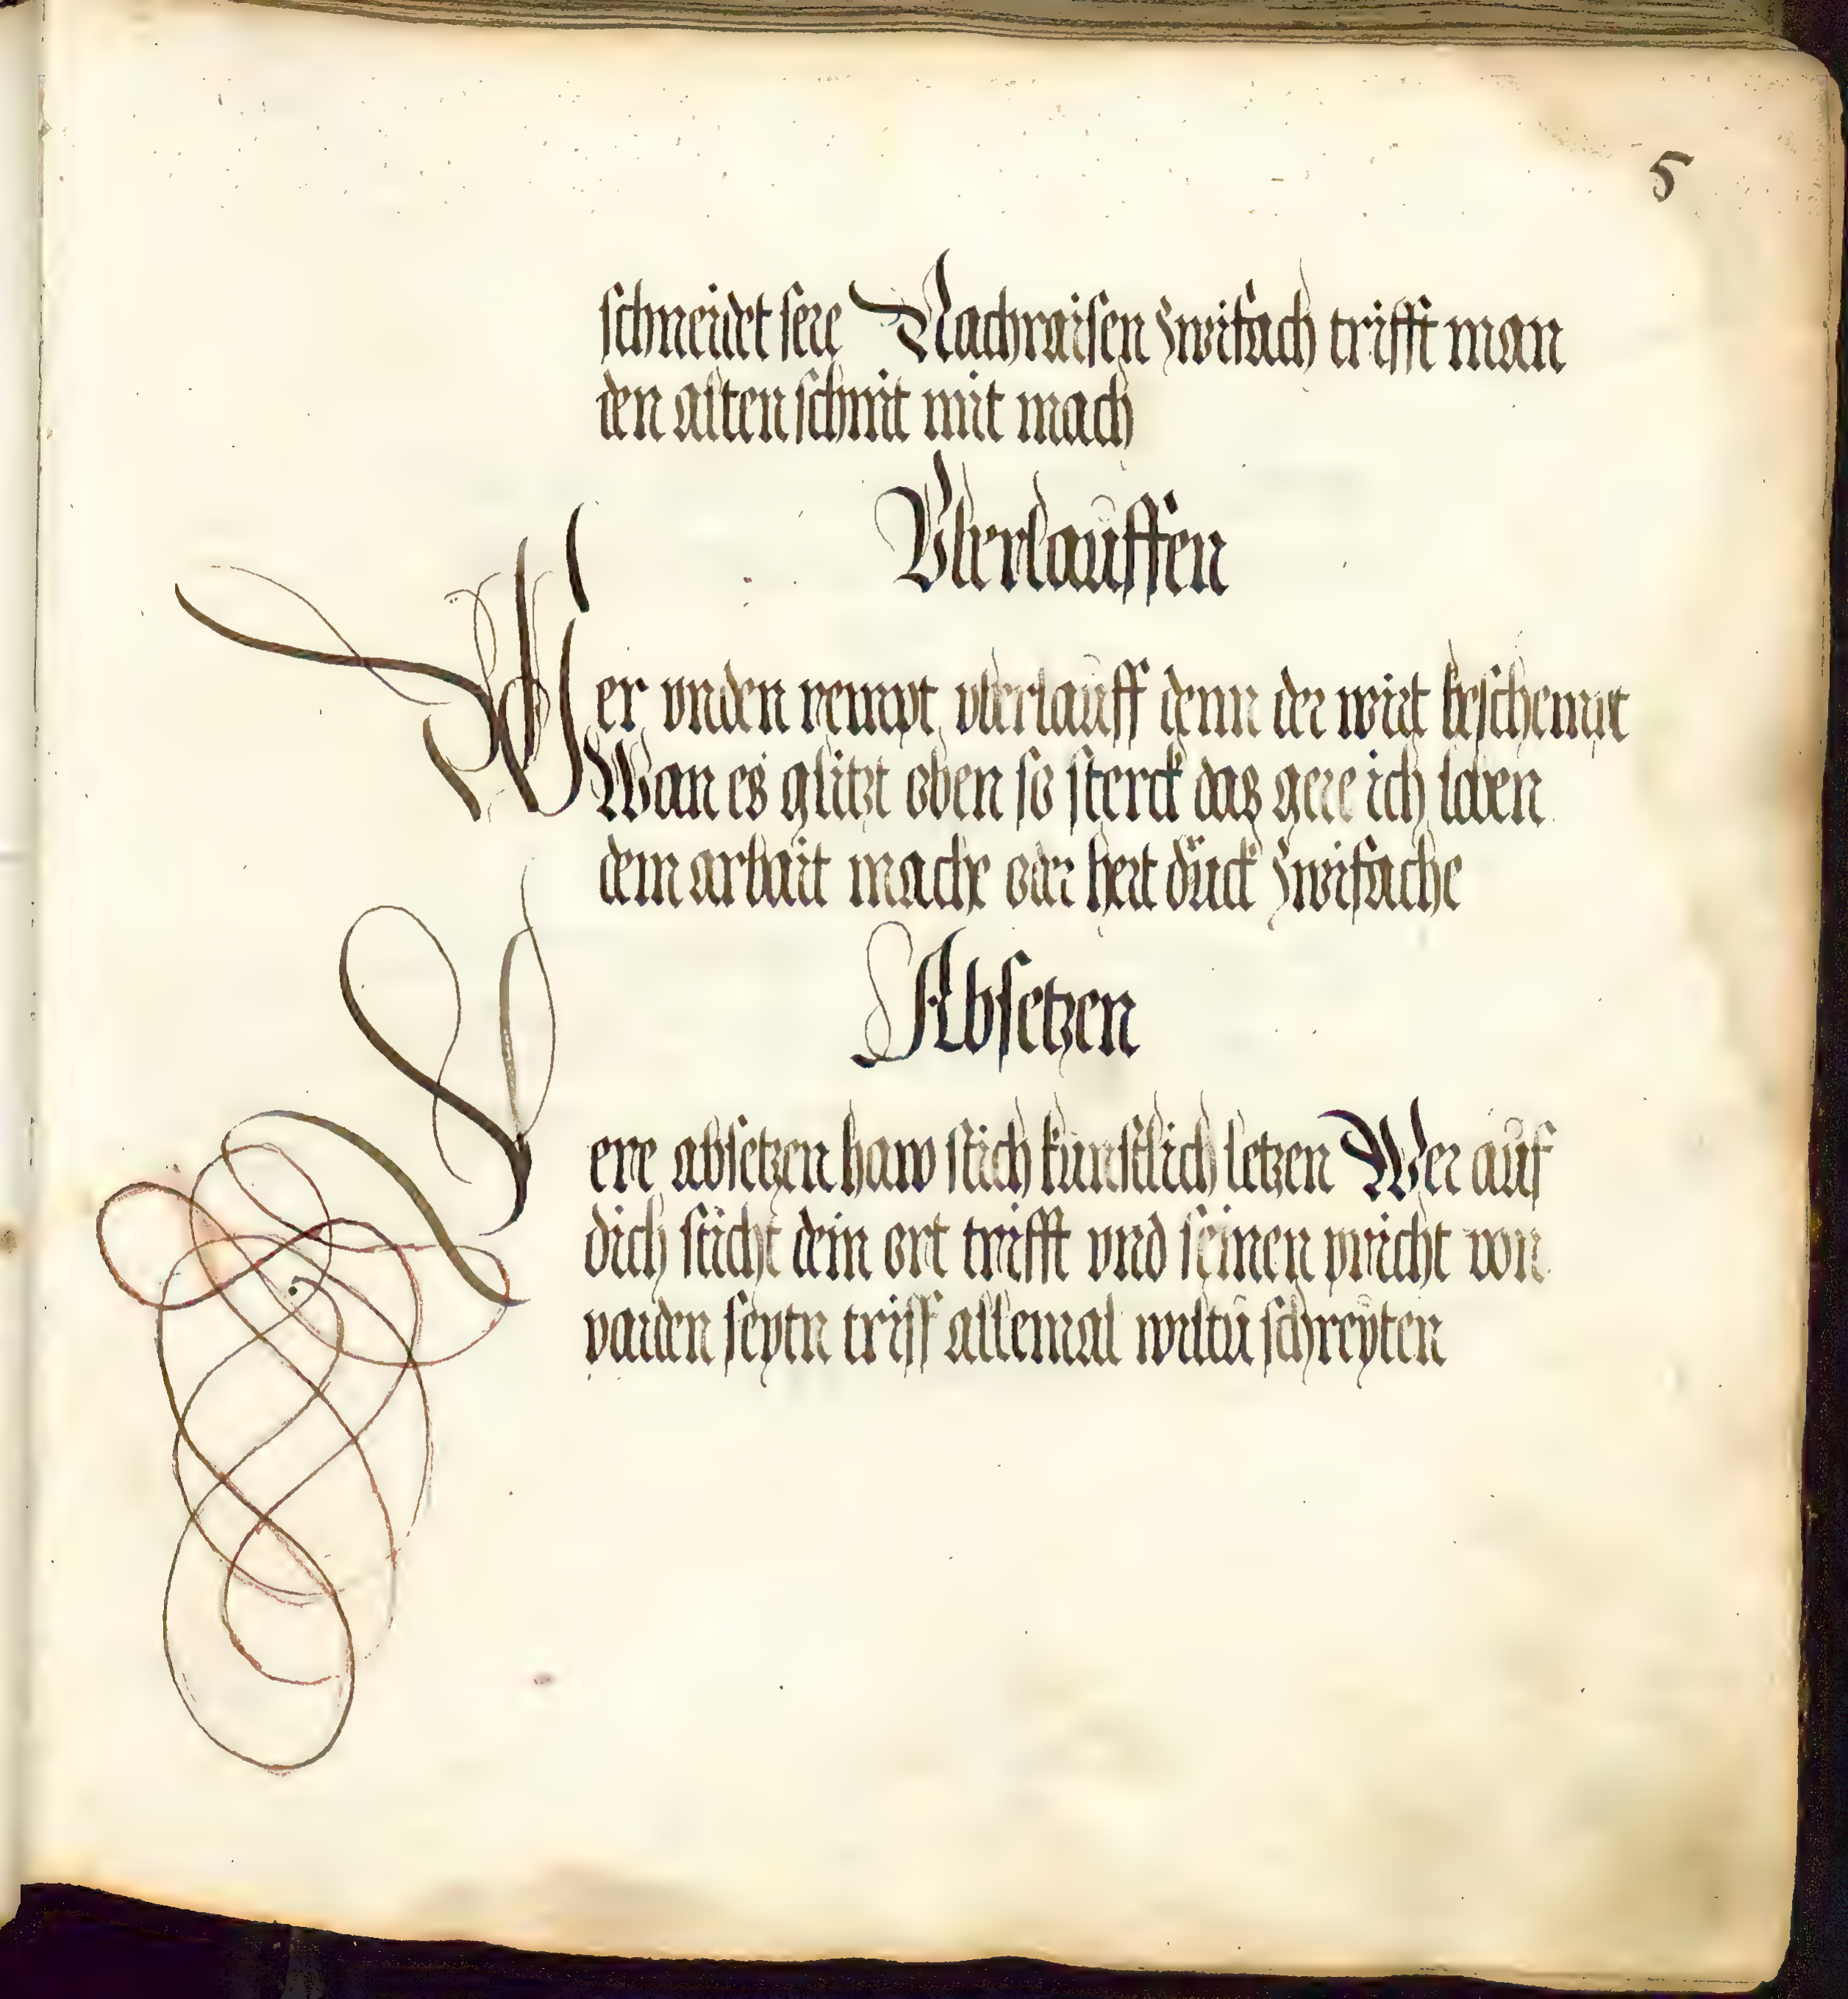 5
schneidet sere Nachraisen zwifach trifft man
den alten schnit mit mach
Vberlauffen
Wer vnden rempt vberlauff denn der wirt beschempt
Wan es glitzt oben so sterck das gere ich loben
dem arbait mache oder hert dück zwifache
Absetzen
Lere absetzen haw stich kunstlich letzen Wer auf
dich sticht dein ort trifft vnd seinen pricht von
paiden seytn triff allemal wiltu schreyten